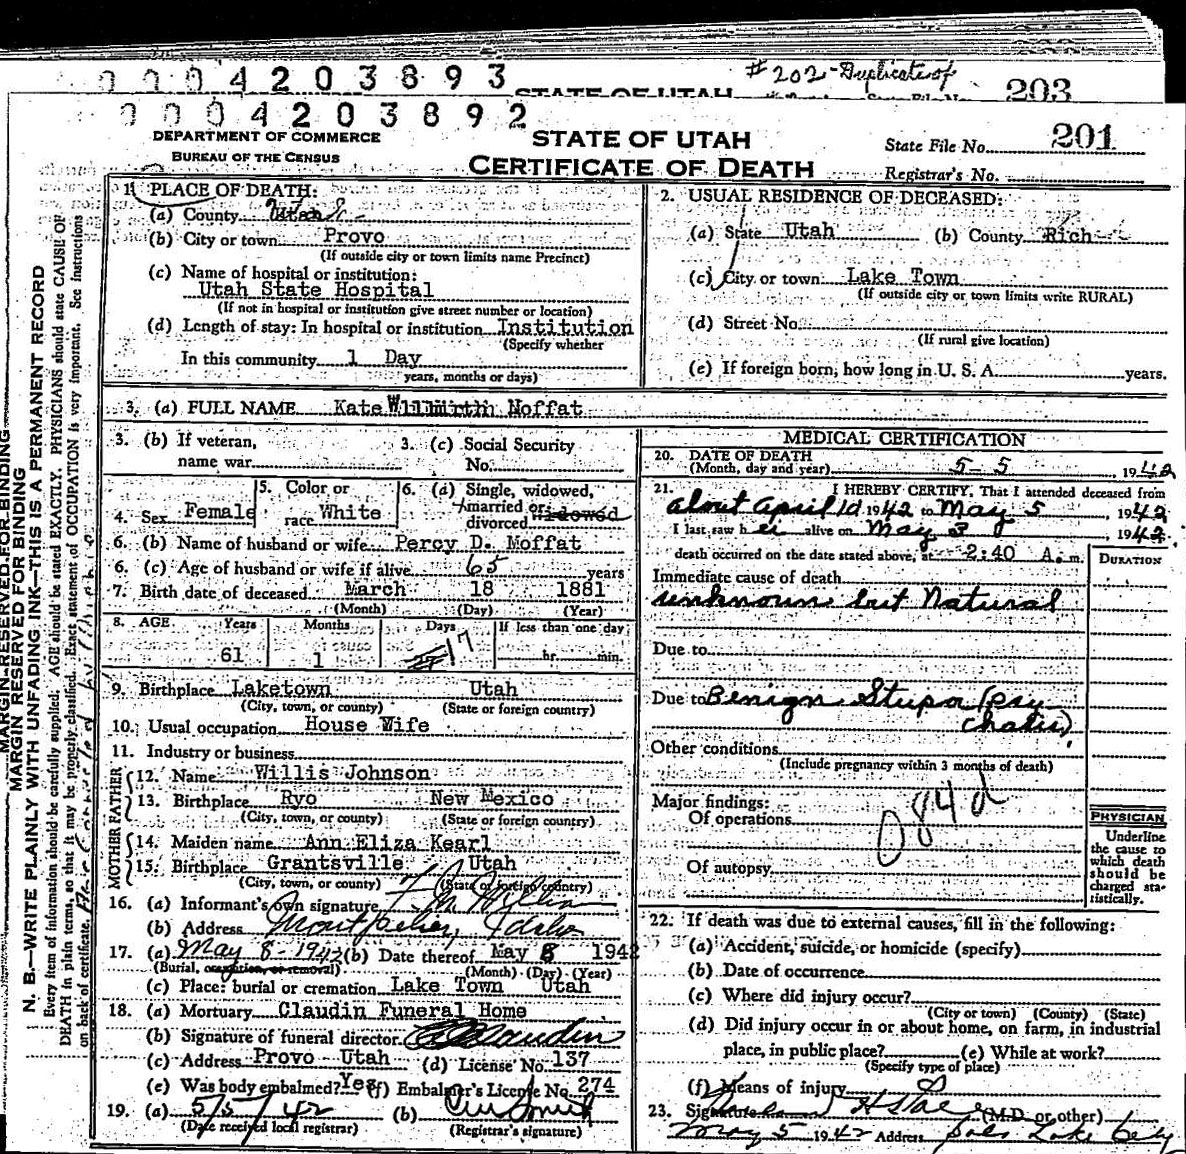 0 0 0 4 2 0 3 8 9 3
#202-Duplicate of
STATE OF UTAH
203
0 0 0 4 2 0 3 8 9 2
DEPARTMENT OF COMMERCE
BUREAU OF THE CENSUS
STATE OF UTAH
CERTIFICATE OF DEATH
State File No. 201
Registrar's No.
MARGIN RESERVED FOR BINDING
MARGIN RESERVED FOR BINDING
N. B.—WRITE PLAINLY WITH UNFADING INK—THIS IS A PERMANENT RECORD
Every item of information should be carefully supplied. AGE should be stated EXACTLY. PHYSICIANS should state CAUSE OF
DEATH in plain terms, so that it may be properly classified. Exact statement of OCCUPATION is very important. See instructions
on back of certificate.
1. PLACE OF DEATH:
(a) County Utah
(b) City or town Provo
(If outside city or town limits name Precinct)
(c) Name of hospital or institution:
Utah State Hospital
(If not in hospital or institution give street number or location)
(d) Length of stay: In hospital or institution Institution
(Specify whether
In this community 1 Day
years, months or days)
2. USUAL RESIDENCE OF DECEASED:
(a) State Utah (b) County Rich
(c) City or town Lake Town
(If outside city or town limits write RURAL)
(d) Street No.
(If rural give location)
(e) If foreign born, how long in U. S. A. years.
3. (a) FULL NAME Kate Wilmirth Moffat
3. (b) If veteran,
name war
3. (c) Social Security
No.
4. Sex Female
5. Color or
race White
6. (a) Single, widowed,
married or
divorced widowed
6. (b) Name of husband or wife Percy D. Moffat
6. (c) Age of husband or wife if alive 65 years
7. Birth date of deceased March 18 1881
(Month) (Day) (Year)
8. AGE Years Months Days If less than one day
61 1 17 hr. min.
9. Birthplace Laketown Utah
(City, town, or county) (State or foreign country)
10. Usual occupation House Wife
11. Industry or business
FATHER
12. Name Willis Johnson
13. Birthplace Ryo New Mexico
(City, town, or county) (State or foreign country)
MOTHER
14. Maiden name Ann Eliza Kearl
15. Birthplace Grantsville Utah
(City, town, or county) (State or foreign country)
16. (a) Informant's own signature
(b) Address Montpelier, Idaho
17. (a) May 8-1942 (b) Date thereof May 8 1942
(Burial, cremation, or removal) (Month) (Day) (Year)
(c) Place: burial or cremation Lake Town Utah
18. (a) Mortuary Claudin Funeral Home
(b) Signature of funeral director Claudin
(c) Address Provo Utah (d) License No. 137
(e) Was body embalmed? Yes (f) Embalmer's License No. 274
19. (a) 5/5/42 (b)
(Date received local registrar) (Registrar's signature)
MEDICAL CERTIFICATION
20. DATE OF DEATH
(Month, day and year) 5-5, 1942
21. I HEREBY CERTIFY, That I attended deceased from
about April 1d 1942 to May 5, 1942
I last saw her alive on May 3, 1942
death occurred on the date stated above, at 2:40 A. m.
DURATION
Immediate cause of death
unknown but Natural
Due to
Due to Benign Stupor (psy
chatic)
Other conditions
(Include pregnancy within 3 months of death)
Major findings:
Of operations
084d
Of autopsy
PHYSICIAN
Underline
the cause to
which death
should be
charged sta-
tistically.
22. If death was due to external causes, fill in the following:
(a) Accident, suicide, or homicide (specify)
(b) Date of occurrence
(c) Where did injury occur?
(City or town) (County) (State)
(d) Did injury occur in or about home, on farm, in industrial
place, in public place? (e) While at work?
(Specify type of place)
(f) Means of injury
23. Signature (M.D. or other)
May 5 1942 Address